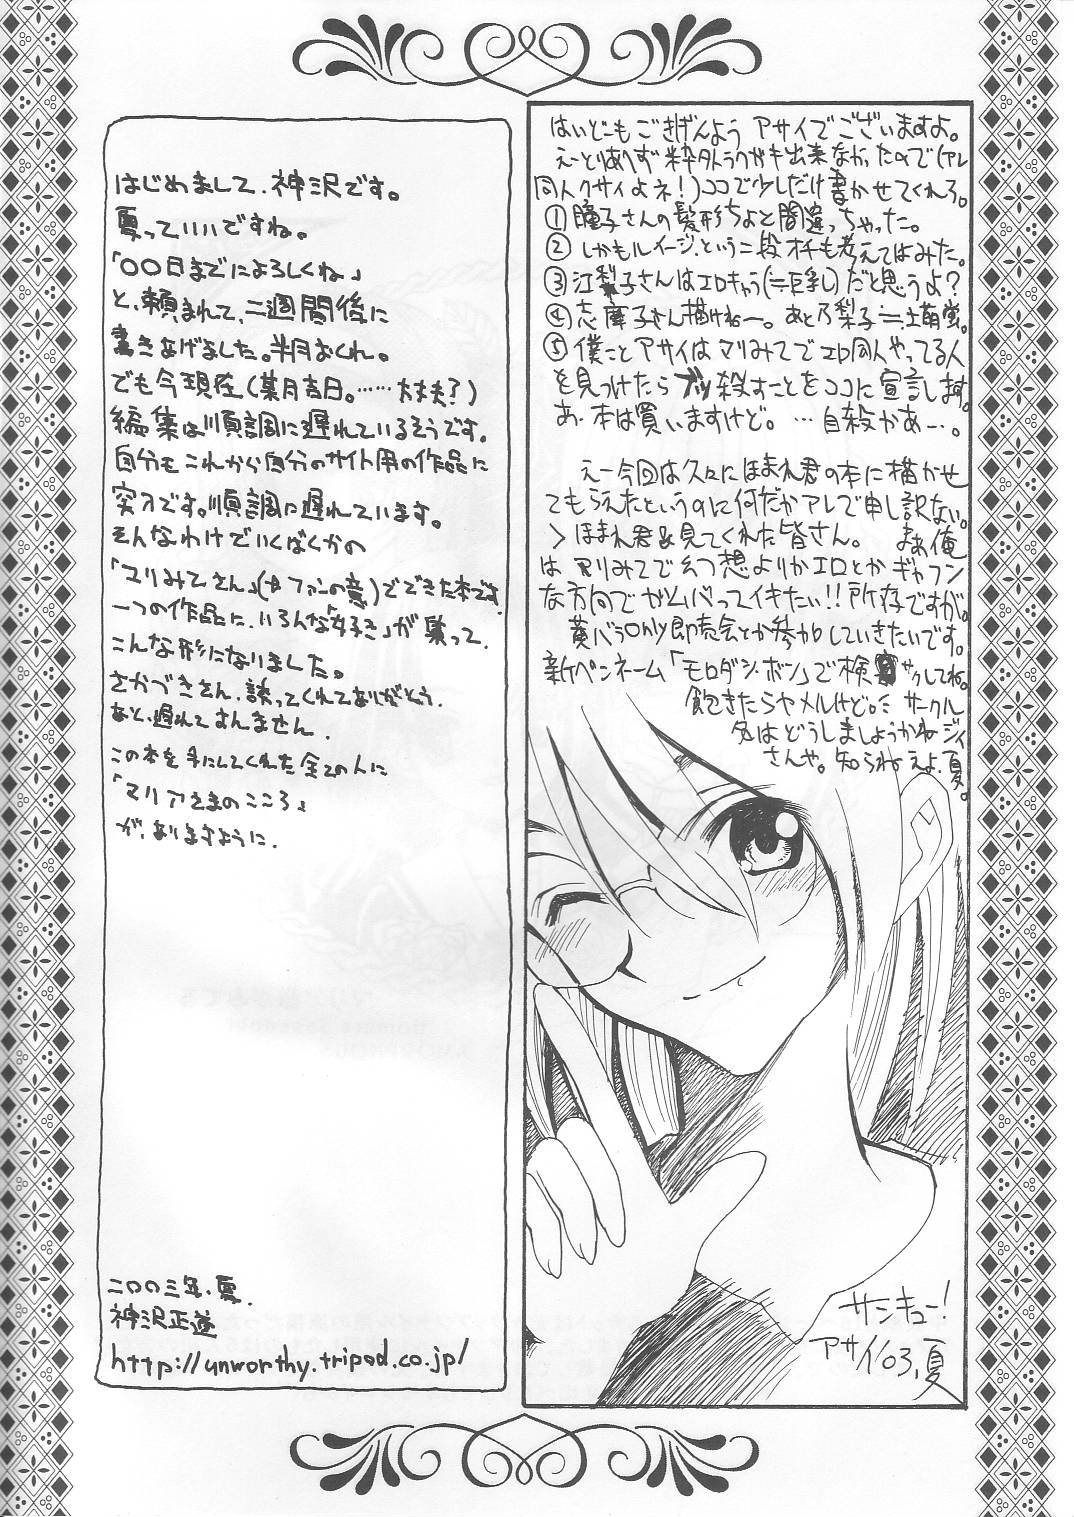 はいどーもごきげんよう アサイでございますよ。
えーとりあえず 粋外ラクガキ出来なかったので(アレ
同人クサイよネ!)ココで少しだけ書かせてくれろ。
① 瞳子さんの髪形ちょと間違っちゃった。
② しかもルイージ.という二段オチも考えてはみた。
③ 江梨子さんはエロキャラ(≒巨乳)だと思うよ?
④ 志摩子さん描けねー。あと乃梨子≒土萌蛍。
⑤ 僕ことアサイはマリみてでエロ同人やってる人
を見つけたらブッ殺すことをココに宣言します。
あ、本は買いますけど。…自殺かぁー。
えー今回は久々にほまれ君の本に描かせ
てもらえたというのに何だかアレで申し訳ない。
>ほまれ君&見てくれた皆さん。 まぁ俺
は マリみてで幻想よりかエロとかギャフン
な方向でガムバってイキたい!!所存ですが。
黄バラonly即売会とか参加していきたいです。
新ペンネーム「モロダシ・ボン」で検サクしてね。
飽きたらヤメルけど。サークル
名はどうしましょうかねジイ
さんや。知らねえよ、夏。
サンキュー!
アサイ03,夏
はじめまして、神沢です。
夏っていいですね。
「〇〇日までによろしくね」
と、頼まれて、二週間後に
書きあげました。半月おくれ。
でも今現在(某月吉日。……大丈夫?)
編集は順調に遅れているそうです。
自分もこれから自分のサイト用の作品に
突入です。順調に遅れています。
そんなわけでいくばくかの
「マリみてさん」(ファンの意)でできた本です
一つの作品に、いろんな「好き」が集って、
こんな形になりました。
さかづきさん、誘ってくれてありがとう。
あと、遅れてすんません.
この本を手にしてくれた全ての人に
「マリアさまのこころ」
が、ありますように.
二〇〇三年.夏.
神沢正道
http://unworthy.tripod.co.jp/